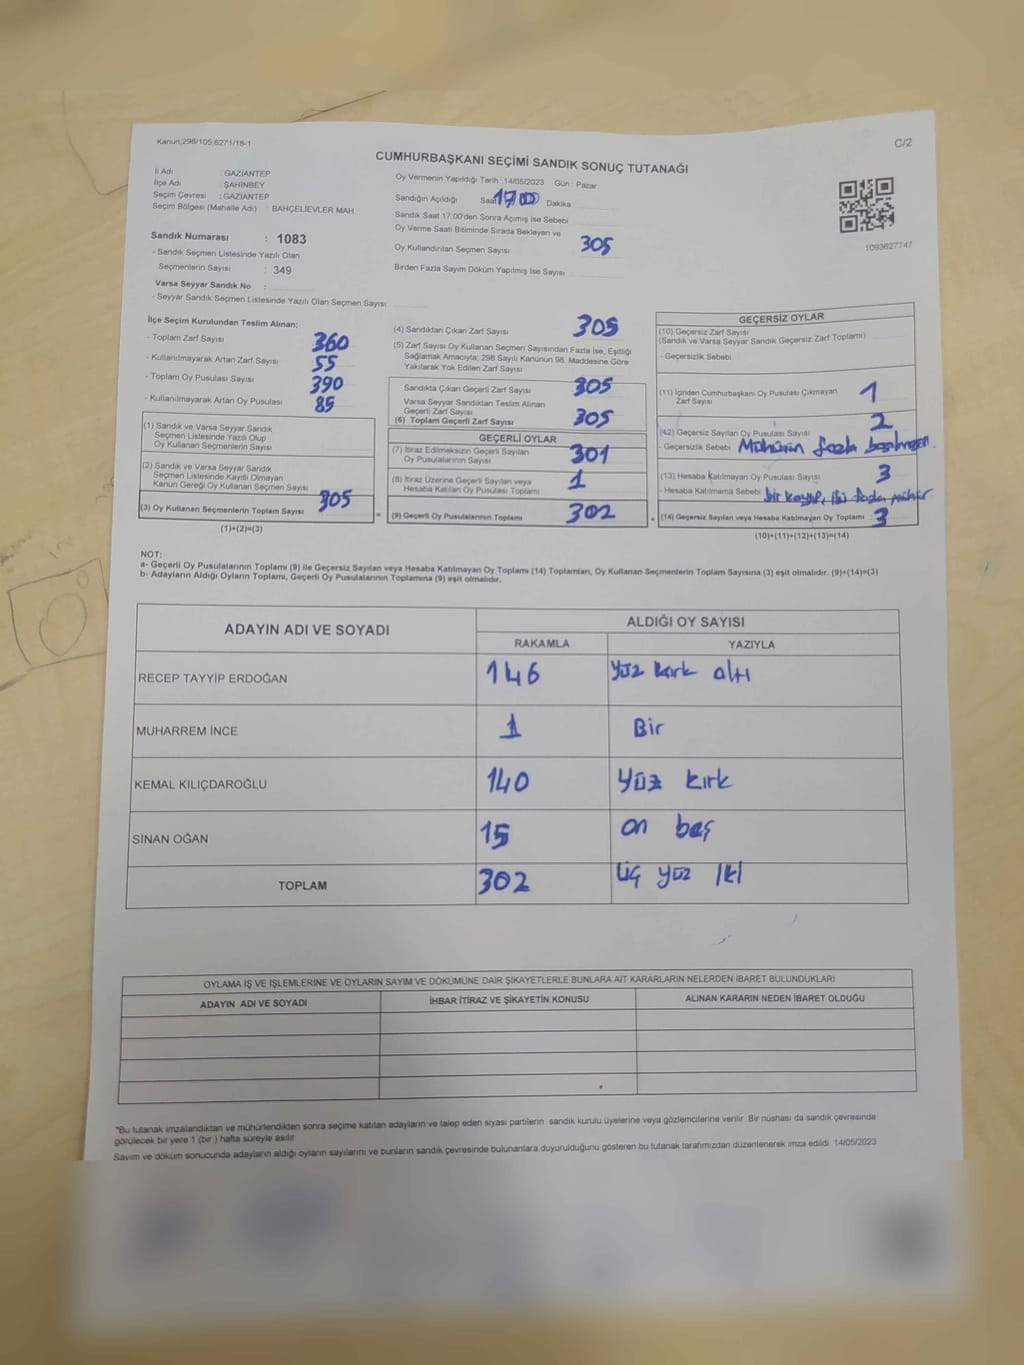 Kanun;298/105,6271/18-1
C/2
CUMHURBAŞKANI SEÇİMİ SANDIK SONUÇ TUTANAĞI
İl Adı : GAZİANTEP
İlçe Adı : ŞAHİNBEY
Seçim Çevresi : GAZİANTEP
Seçim Bölgesi (Mahalle Adı) : BAHÇELİEVLER MAH.
Sandık Numarası : 1083
- Sandık Seçmen Listesinde Yazılı Olan
Seçmenlerin Sayısı : 349
Varsa Seyyar Sandık No :
- Seyyar Sandık Seçmen Listesinde Yazılı Olan Seçmen Sayısı:
Oy Vermenin Yapıldığı Tarih :14/05/2023 Gün : Pazar
Sandığın Açıldığı Saat 17 00 Dakika
Sandık Saat 17.00'den Sonra Açımış İse Sebebi
Oy Verme Saati Bitiminde Sırada Bekleyen ve
Oy Kullandırılan Seçmen Sayısı 305
Birden Fazla Sayım Döküm Yapılmış İse Sayısı
1093627747
İlçe Seçim Kurulundan Teslim Alınan;
- Toplam Zarf Sayısı 360
- Kullanılmayarak Artan Zarf Sayısı 55
- Toplam Oy Pusulası Sayısı 390
- Kullanılmayarak Artan Oy Pusulası 85
(1) Sandık ve Varsa Seyyar Sandık
Seçmen Listesinde Yazılı Olup
Oy Kullanan Seçmenlerin Sayısı
(2) Sandık ve Varsa Seyyar Sandık
Seçmen Listesinde Kayıtlı Olmayan
Kanun Gereği Oy Kullanan Seçmen Sayısı
(3) Oy Kullanan Seçmenlerin Toplam Sayısı 305
(1)+(2)=(3)
(4) Sandıktan Çıkan Zarf Sayısı 305
(5) Zarf Sayısı Oy Kullanan Seçmen Sayısından Fazla İse, Eşitliği
Sağlamak Amacıyla; 298 Sayılı Kanunun 98. Maddesine Göre
Yakılarak Yok Edilen Zarf Sayısı
Sandıkta Çıkan Geçerli Zarf Sayısı 305
Varsa Seyyar Sandıktan Teslim Alınan
Geçerli Zarf Sayısı
(6) Toplam Geçerli Zarf Sayısı 305
GEÇERLİ OYLAR
(7) İtiraz Edilmeksizin Geçerli Sayılan
Oy Pusulalarının Sayısı 301
(8) İtiraz Üzerine Geçerli Sayılan veya
Hesaba Katılan Oy Pusulası Toplamı 1
= (9) Geçerli Oy Pusulalarının Toplamı 302
GEÇERSİZ OYLAR
(10) Geçersiz Zarf Sayısı
(Sandık ve Varsa Seyyar Sandık Geçersiz Zarf Toplamı)
- Geçersizlik Sebebi
(11) İçinden Cumhurbaşkanı Oy Pusulası Çıkmayan
Zarf Sayısı 1
(12) Geçersiz Sayılan Oy Pusulası Sayısı 2
- Geçersizlik Sebebi Mührün fazla basılması
(13) Hesaba Katılmayan Oy Pusulası Sayısı 3
- Hesaba Katılmama Sebebi bir kayıp, iki fazla mühür
+ (14) Geçersiz Sayılan veya Hesaba Katılmayan Oy Toplamı 3
(10)+(11)+(12)+(13)=(14)
NOT:
a- Geçerli Oy Pusulalarının Toplamı (9) ile Geçersiz Sayılan veya Hesaba Katılmayan Oy Toplamı (14) Toplamları, Oy Kullanan Seçmenlerin Toplam Sayısına (3) eşit olmalıdır. (9)+(14)=(3)
b- Adayların Aldığı Oyların Toplamı, Geçerli Oy Pusulalarının Toplamına (9) eşit olmalıdır.
ADAYIN ADI VE SOYADI ALDIĞI OY SAYISI
RAKAMLA YAZIYLA
RECEP TAYYİP ERDOĞAN 146 yüz kırk altı
MUHARREM İNCE 1 Bir
KEMAL KILIÇDAROĞLU 140 yüz kırk
SİNAN OĞAN 15 on beş
TOPLAM 302 üç yüz iki
OYLAMA İŞ VE İŞLEMLERİNE VE OYLARIN SAYIM VE DÖKÜMÜNE DAİR ŞİKAYETLERLE BUNLARA AİT KARARLARIN NELERDEN İBARET BULUNDUKLARI
ADAYIN ADI VE SOYADI İHBAR İTİRAZ VE ŞİKAYETİN KONUSU ALINAN KARARIN NEDEN İBARET OLDUĞU
*Bu tutanak imzalandıktan ve mühürlendikten sonra seçime katılan adayların ve talep eden siyasi partilerin sandık kurulu üyelerine veya gözlemcilerine verilir. Bir nüshası da sandık çevresinde
görülecek bir yere 1 (bir) hafta süreyle asılır.
Sayım ve döküm sonucunda adayların aldığı oyların sayılarını ve bunların sandık çevresinde bulunanlara duyurulduğunu gösteren bu tutanak tarafımızdan düzenlenerek imza edildi. 14/05/2023